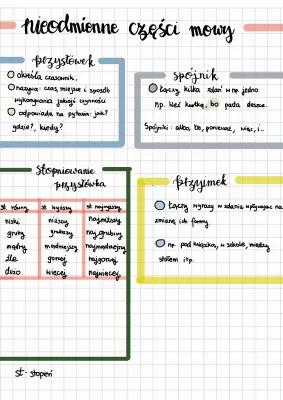 nieodmienne części mowy
przysłówek
określa czasownik.
nazywa: czas, miejsce i sposób
wykonywania jakiejś czynności
odpowiada na pytania: jak?
gdzie?, kiedy?
spójnik
Łączy kilka zdań w np. jedno
np. Weź kurtkę, bo pada deszcz.
Spójniki: albo, bo, ponieważ, więc, i...
Stopniowanie
przysłówka
st. równy st. wyższy st. najwyższy
niski niższy najniższy
gruby grubszy najgrubszy
mądry mądrzejszy najmądrzejszy
źle gorzej najgorzej
dużo więcej najwięcej
przyimek
Łączy wyrazy w zdania wpływając na
zmianę ich formy
np. pod książką, w szkole, między
stołem itp.
st - stopień